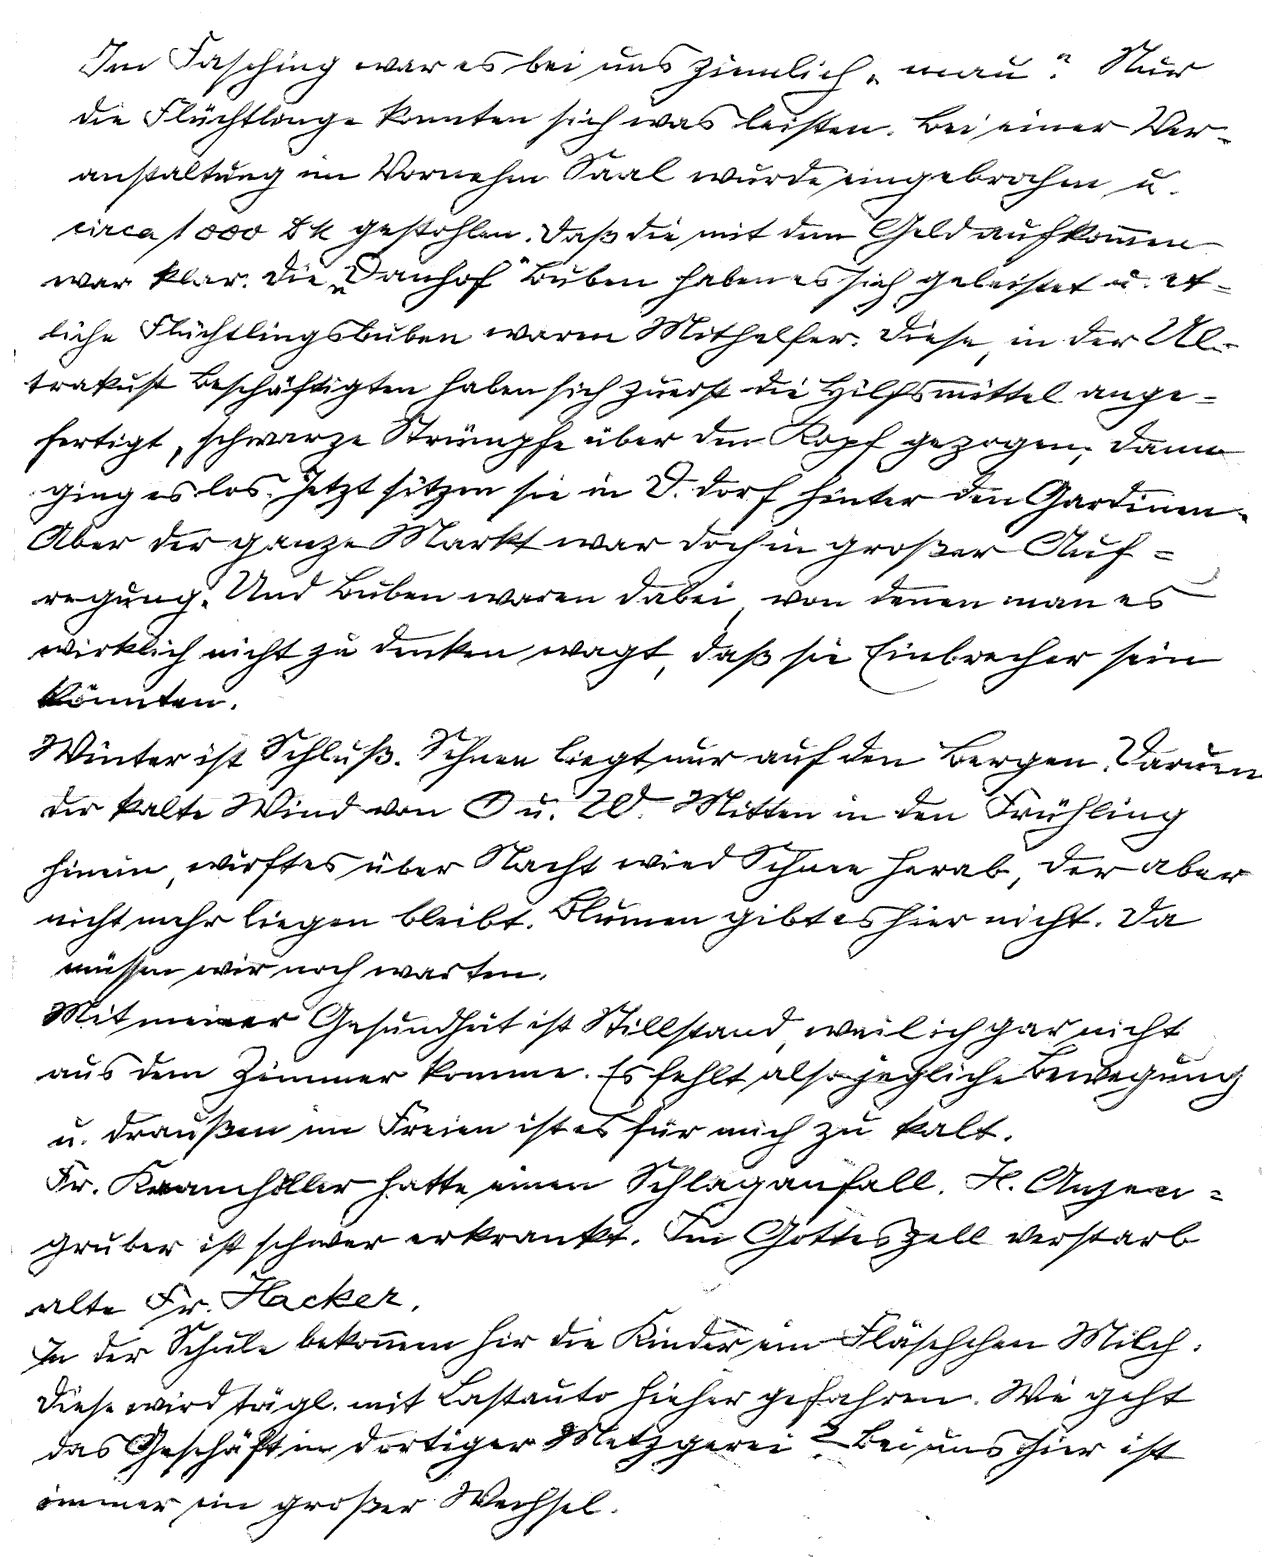 Im Fasching war es bei uns ziemlich „mau". Nur
die Flüchtlinge konnten sich was leisten. Bei einer Ver-
anstaltung im Vornehm Saal wurde eingebrochen u.
circa 1000 DM gestohlen. Daß die mit dem Geld aufkommen
war klar. Die „Danhof" Buben haben es sich geleistet u. et-
liche Flüchtlingsbuben waren Mithelfer. Diese, in der Ul-
trakust Beschäftigten haben sich zuerst die Hilfsmittel ange-
fertigt, schwarze Strümpfe über den Kopf gezogen, dann
ging es los. Jetzt sitzen sie in D.dorf hinter den Gardinen.
Aber der ganze Markt war doch in großer Auf-
regung. Und Buben waren dabei, von denen man es
wirklich nicht zu denken wagt, daß sie Einbrecher sein
könnten.
Winter ist Schluß. Schnee liegt nur auf den Bergen. Darum
der kalte Wind von O u. W. Mitten in den Frühling
hinein, wirft es über Nacht wied Schnee herab, der aber
nicht mehr liegen bleibt. Blumen gibt es hier nicht. Da
müssen wir noch warten.
Mit meiner Gesundheit ist Stillstand, weil ich gar nicht
aus dem Zimmer komme. Es fehlt also jegliche Bewegung
u. draußen im Freien ist es für mich zu kalt.
Fr. Kramhöller hatte einen Schlaganfall. H. Anzen-
gruber ist schwer erkrankt. Im Gotteszell verstarb
alte Fr. Hacker.
In der Schule bekommen hir die Kinder ein Fläschchen Milch.
Diese wird tägl. mit Lastauto hieher gefahren. Wie geht
das Geschäft in dortiger Metzgerei? Bei uns hier ist
immer ein großer Wechsel.